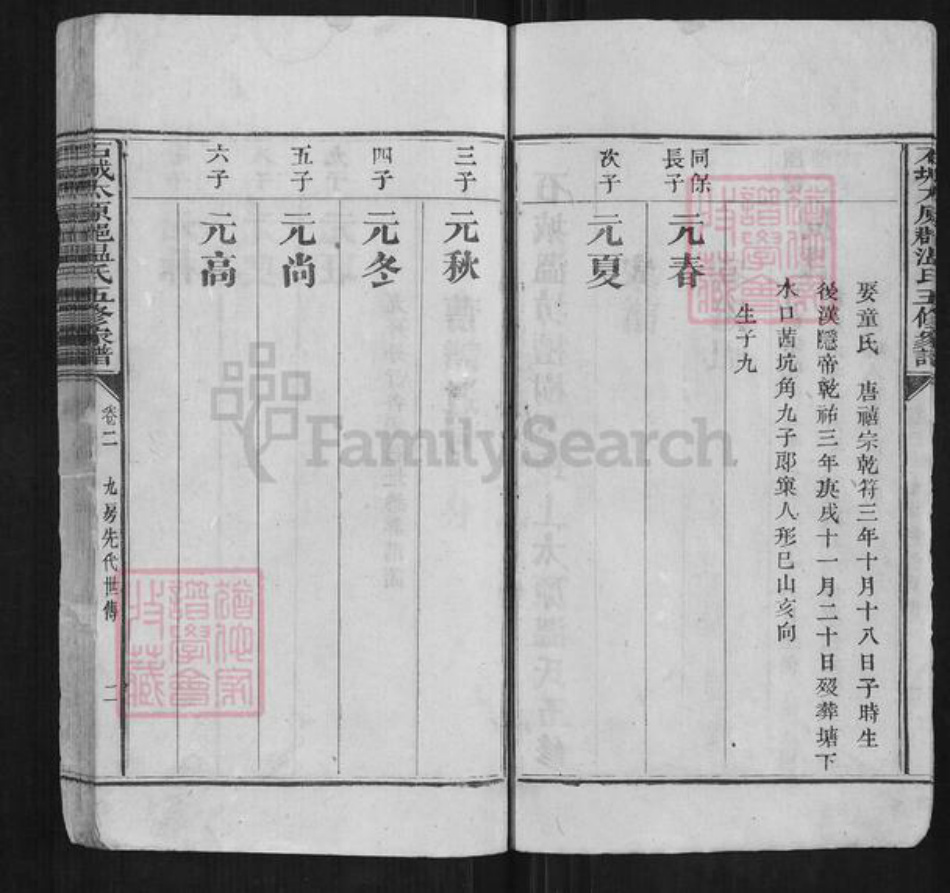 石城太原郡溫氏五修家譜
娶童氏 唐禧宗乾符三年十月十八日子時生
後漢隱帝乾祐三年庚戌十一月二十日歿葬塘下
水口茜坑角九子郎窠人形巳山亥向
生子九
同保
長子 元春
次子 元夏
三子 元秋
四子 元冬
五子 元尚
六子 元高
石城太原郡溫氏五修家譜 卷二 九易先代世傳 二
FamilySearch